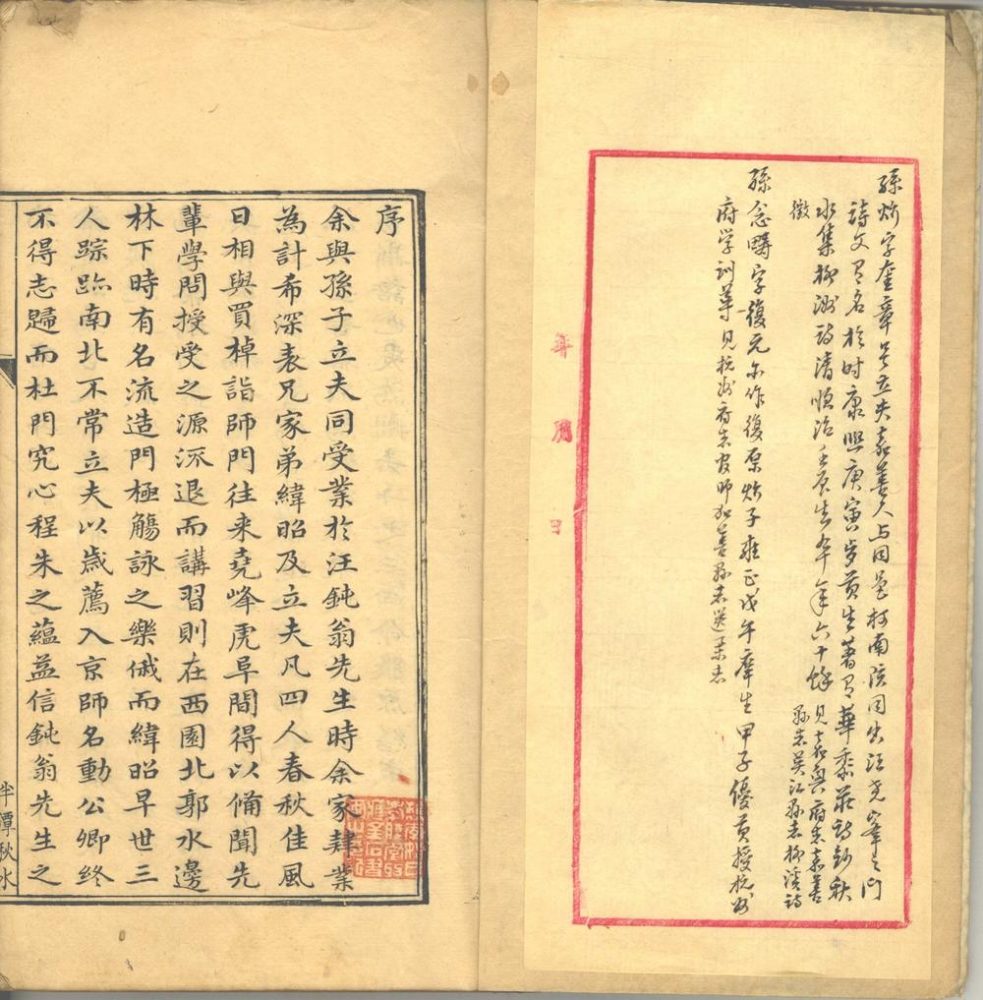 孫炌字奎章号立夫嘉善人与同邑柯南陔同出汪尧峯之门
詩文有名於时康熙庚寅岁貢生著有華黍莊詩鈔秋
水集柳洲詩清順治壬辰生卒年六十餘見嘉興府志嘉善
县志吴江县志柳溪詩
徵
孫念疇字復元亦作復原炌子雍正戊午庠生甲子優貢授杭州
府学訓導見杭州府志官师嘉善县志選举志
年 月 日
序
余與孫子立夫同受業於汪鈍翁先生時余家肄業
為計希深表兄家弟緯昭及立夫凡四人春秋佳風
日相與買棹詣師門往来堯峰虎阜間得以備聞先
輩學問授受之源泒退而講習則在西園北郭水邊
林下時有名流造門極觴詠之樂俄而緯昭早世三
人踪跡南北不常立夫以歲薦入京師名動公卿終
不得志歸而杜門究心程朱之蘊益信鈍翁先生之
半潭秋水